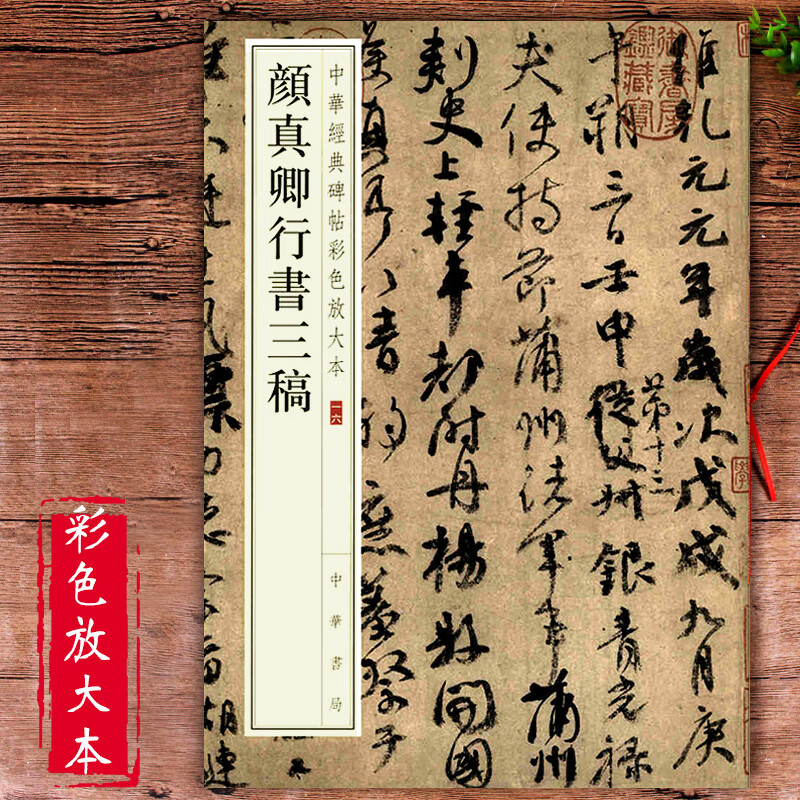 顔真卿行書三稿
中華經典碑帖彩色放大本
一六
中華書局
維乾元元年歲次戊戌九月庚
午朔三日壬申從父銀青光祿
第十三
夫使持節蒲州諸軍事蒲州
刺史上輕車都尉丹楊縣開國
御書房鑑藏寶
彩色放大本